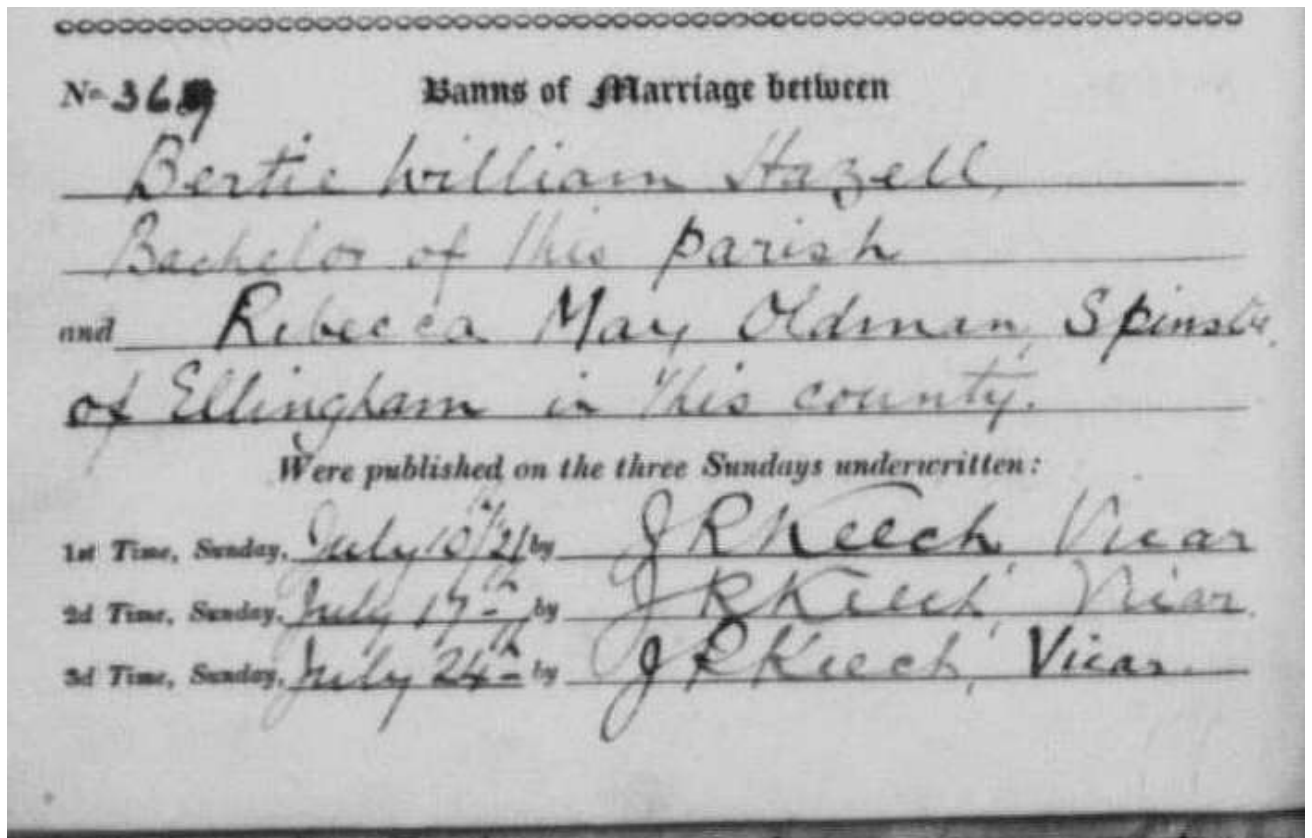 No. 369
Banns of Marriage between
Bertie William Hazell,
Bachelor of this parish
and Rebecca May Oldman, Spinster
of Ellingham in this county.
Were published on the three Sundays underwritten:
1st Time, Sunday, July 10th/21 by J R Keech Vicar
2d Time, Sunday, July 17th by J R Keech, Vicar.
3d Time, Sunday, July 24th by J R Keech, Vicar.